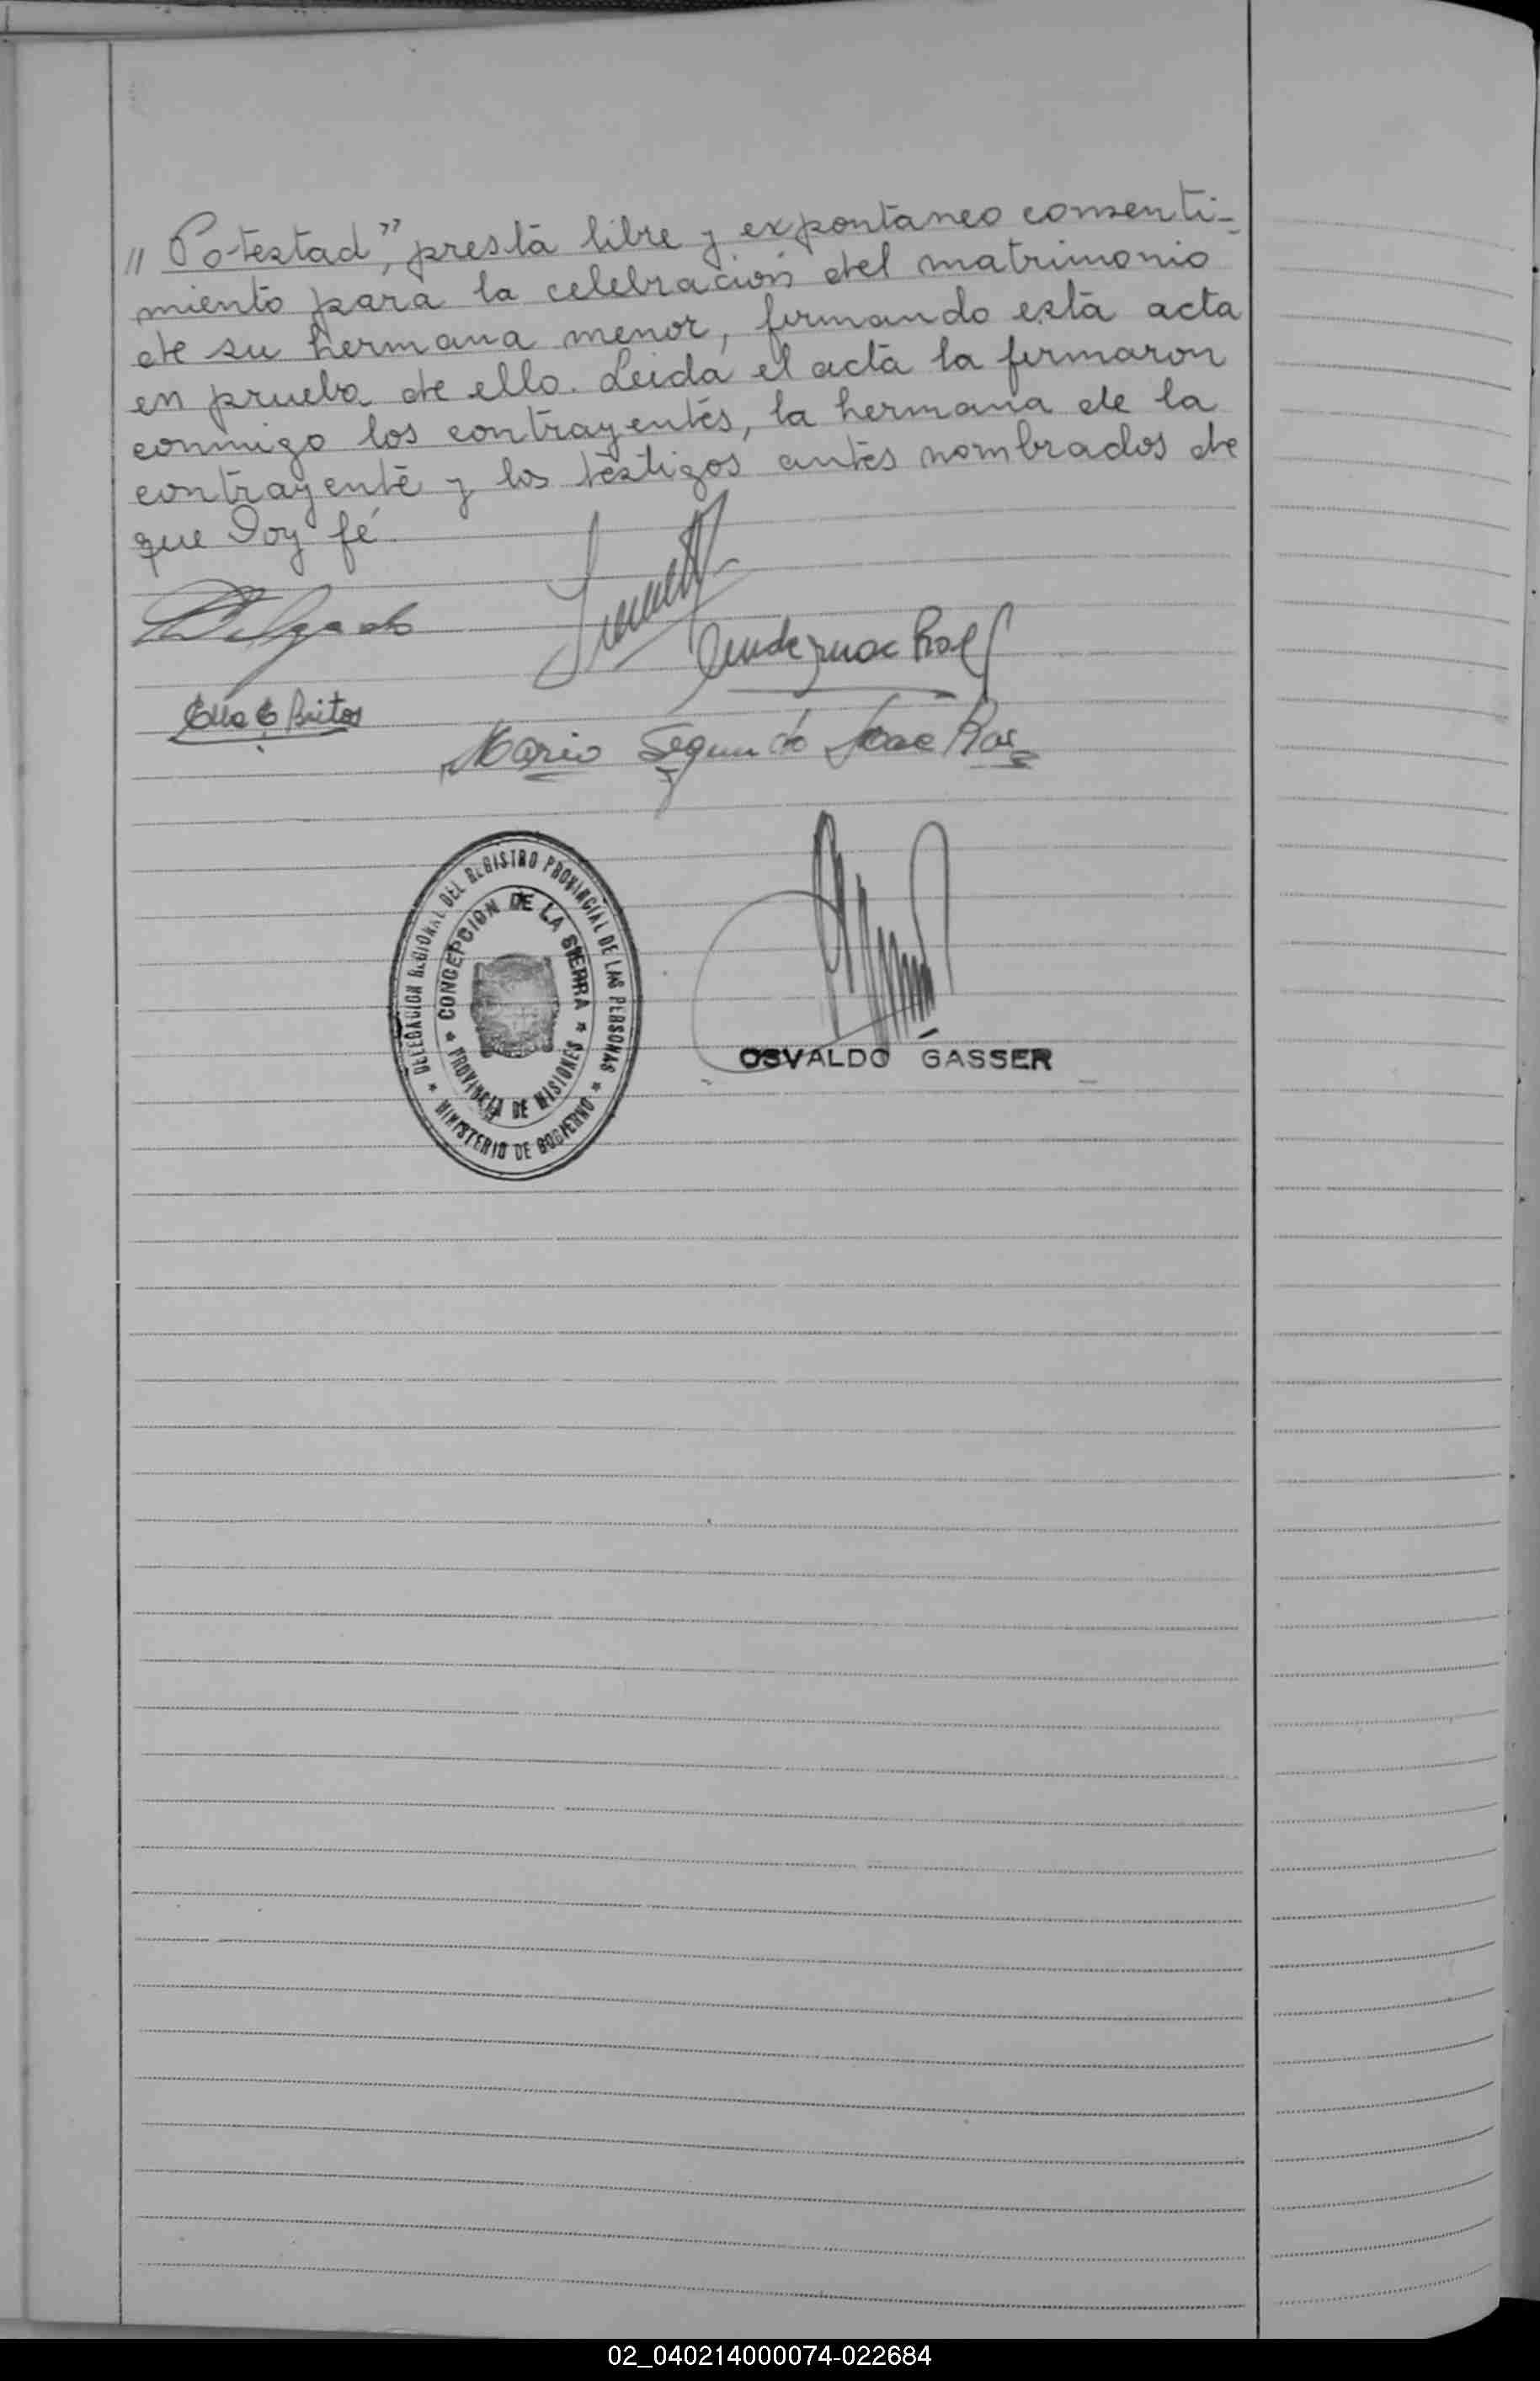 " Potestad", presta libre y expontáneo consenti-
miento para la celebración del matrimonio
de su hermana menor, firmando esta acta
en prueba de ello. Leída el acta la firmaron
conmigo los contrayentes, la hermana de la
contrayente y los testigos antes nombrados de
que Doy fé.
Delgado
Ella E Britos
Mario Segundo José
DELEGACION REGIONAL DEL REGISTRO PROVINCIAL DE LAS PERSONAS
* MINISTERIO DE GOBIERNO *
* CONCEPCION DE LA SIERRA *
PROVINCIA DE MISIONES
OSVALDO GASSER
02_040214000074-022684